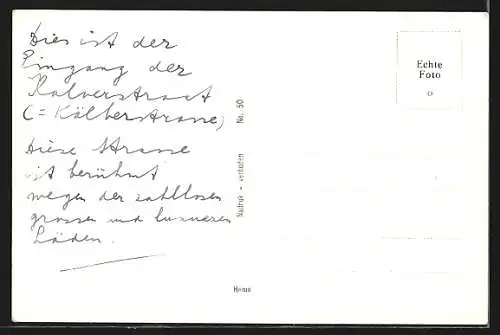 Dies ist der
Eingang der
Kalverstraat
(= Kälberstrasse)
Diese Strasse
ist berühmt
wegen der zahllosen
grossen und luxuriösen
Läden.
Nadruk - verboden No. 50
Echte
Foto